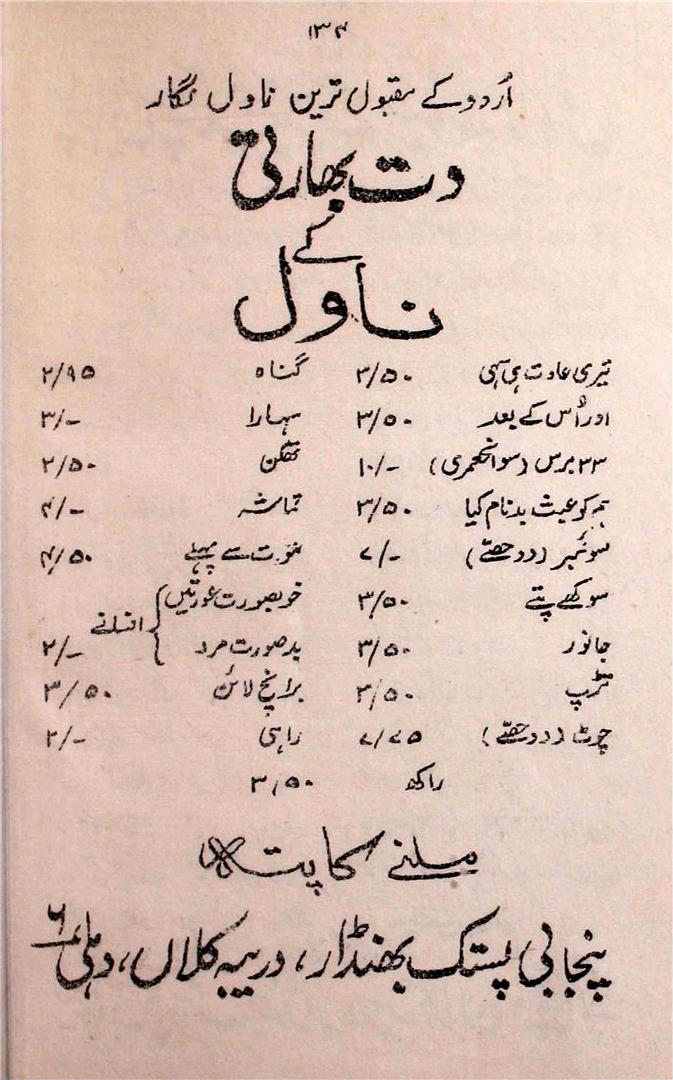 ۱۳۴
اُردو کے مقبول ترین ناول نگار
دت بھارتی
کے
ناول
تیری عادت ہی سہی ۳/۵۰ گناہ ۲/۹۵
اور اُس کے بعد ۳/۵۰ سہارا ۳/-
۳۳ برس (سوانحعمری) ۱۰/- تھکن ۲/۵۰
ہم کو عبث بدنام کیا ۳/۵۰ تماشہ ۴/-
سوئمبر (دو حصّے) ۷/- موت سے پہلے ۴/۵۰
سوکھے پتے ۳/۵۰ خوبصورت عورتیں
جانور ۳/۵۰ بدصورت مرد } افسانے ۲/-
تڑپ ۳/۵۰ برانچ لائن ۳/۵۰
چوٹ (دو حصّے) ۷/۷۵ راہی ۲/-
راکھ ۳/۵۰
ملنے کا پتہ
پنجابی پستک بھنڈار، دریبہ کلاں، دہلی ۶